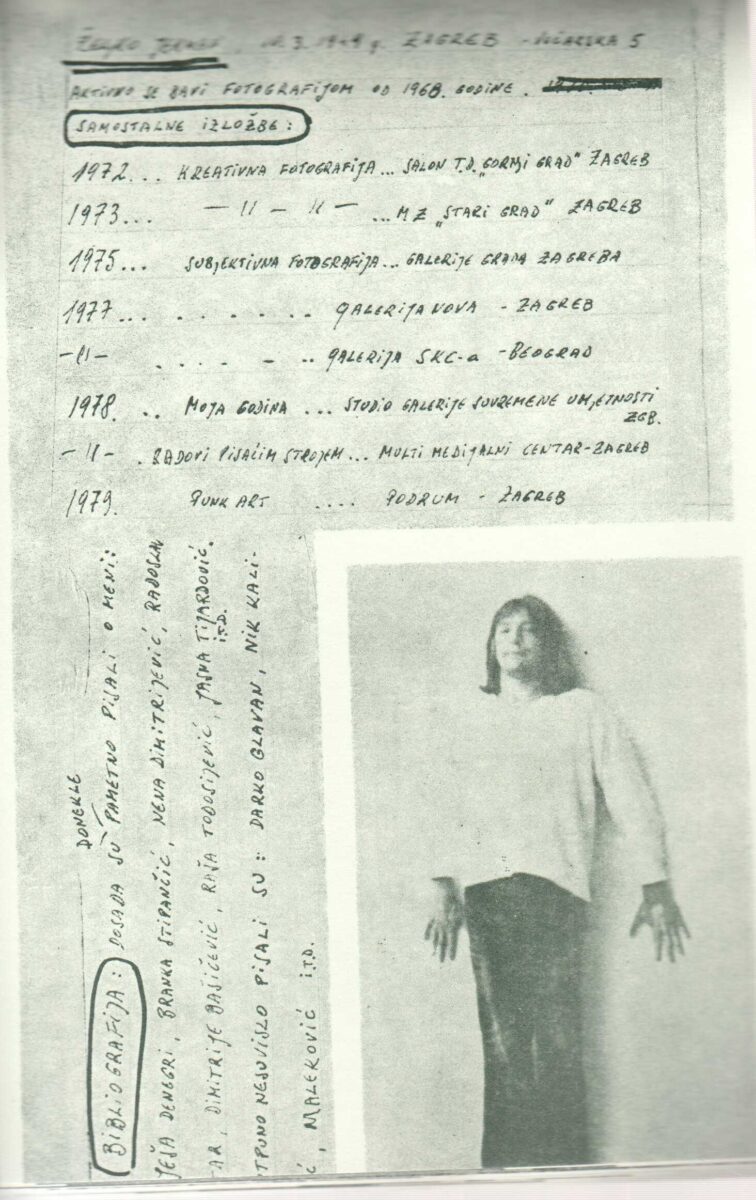 ŽELJKO JERMAN, 1949 g. ZAGREB - VOĆARSKA 5
AKTIVNO SE BAVI FOTOGRAFIJOM OD 1968. GODINE.
SAMOSTALNE IZLOŽBE:
1972... KREATIVNA FOTOGRAFIJA... SALON T.D. „GORNJI GRAD" ZAGREB
1973... — 11 — 11 — ...MZ „STARI GRAD" ZAGREB
1975... SUBJEKTIVNA FOTOGRAFIJA... GALERIJE GRADA ZAGREBA
1977... . . . . . . GALERIJA NOVA - ZAGREB
-11- . . . . - .. GALERIJA SKC-a - BEOGRAD
1978. .. MOJA GODINA ... STUDIO GALERIJE SUVREMENE UMJETNOSTI
ZGB.
-11- . RADOVI PISAĆIM STROJEM... MULTI MEDIJALNI CENTAR-ZAGREB
1979. PUNK ART .... PODRUM - ZAGREB
DONEKLE
BIBLIOGRAFIJA: DOSADA SU PAMETNO PISALI O MENI:
JEŠA DENEGRI, BRANKA STIPANČIĆ, NENA DIMITRIJEVIĆ, RADOSLAV
AR, DIMITRIJE BAŠIČEVIĆ, RAŠA TODOSIJEVIĆ, JASNA TIJARDOVIĆ.
I.T.D.
TPUNO NESUVISLO PISALI SU: DARKO GLAVAN, NIK KALI-
Ć, MALEKOVIĆ I.T.D.